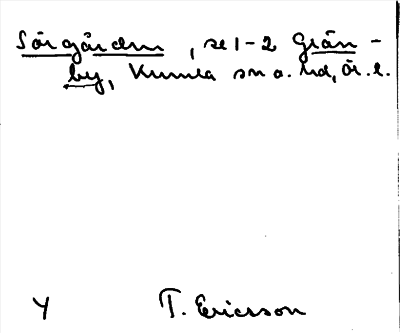 Sörgården, se 1-2 Grän-
by, Kumla sn o. hd, Ör. l.
Y T. Ericsson